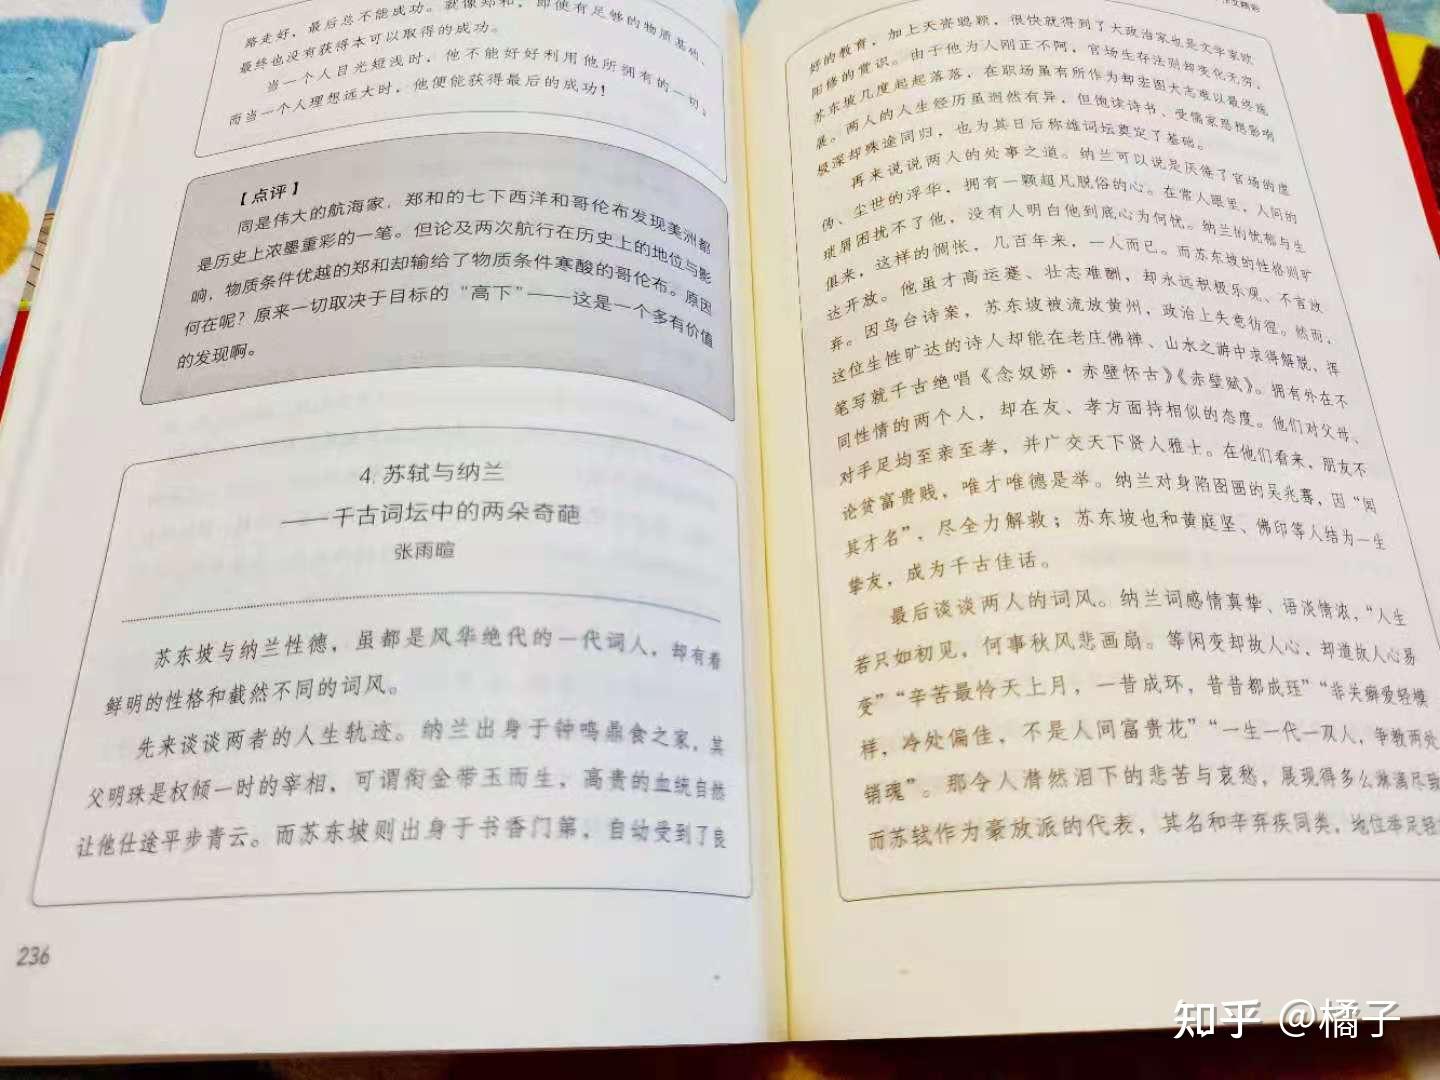 路走好，最后总不能成功。就像郑和，即使有足够的物质基础、
最终也没有获得本可以取得的成功。
当一个人目光短浅时，他不能好好利用他所拥有的一切；
而当一个人理想远大时，他便能获得最后的成功！
【点评】
同是伟大的航海家，郑和的七下西洋和哥伦布发现美洲都
是历史上浓墨重彩的一笔。但论及两次航行在历史上的地位与影
响，物质条件优越的郑和却输给了物质条件寒酸的哥伦布。原因
何在呢？原来一切取决于目标的“高下”——这是一个多有价值
的发现啊。
4. 苏轼与纳兰
——千古词坛中的两朵奇葩
张雨暄
苏东坡与纳兰性德，虽都是风华绝代的一代词人，却有着
鲜明的性格和截然不同的词风。
先来谈谈两者的人生轨迹。纳兰出身于钟鸣鼎食之家，其
父明珠是权倾一时的宰相，可谓衔金带玉而生，高贵的血统自然
让他仕途平步青云。而苏东坡则出身于书香门第，自动受到了良
236
好的教育，加上天资聪颖，很快就得到了大政治家也是文学家欧
阳修的赏识。由于他为人刚正不阿，官场生存法则却变化无穷，
苏东坡几度起起落落，在职场虽有所作为却宏图大志难以最终施
展。两人的人生经历虽迥然有异，但饱读诗书、受儒家思想影响
极深却殊途同归，也为其日后称雄词坛奠定了基础。
再来说说两人的处事之道。纳兰可以说是厌倦了官场的虚
伪、尘世的浮华，拥有一颗超凡脱俗的心。在常人眼里，人间的
琐屑困扰不了他，没有人明白他到底心为何忧。纳兰的忧郁与生
俱来，这样的惆怅，几百年来，一人而已。而苏东坡的性格则旷
达开放。他虽才高运蹇、壮志难酬，却永远积极乐观、不言放
弃。因乌台诗案，苏东坡被流放黄州，政治上失意彷徨。然而，
这位生性旷达的诗人却能在老庄佛禅、山水之游中求得解脱，挥
笔写就千古绝唱《念奴娇·赤壁怀古》《赤壁赋》。拥有外在不
同性情的两个人，却在友、孝方面持相似的态度。他们对父母、
对手足均至亲至孝，并广交天下贤人雅士。在他们看来，朋友不
论贫富贵贱，唯才唯德是举。纳兰对身陷囹圄的吴兆骞，因“闻
其才名”，尽全力解救；苏东坡也和黄庭坚、佛印等人结为一生
挚友，成为千古佳话。
最后谈谈两人的词风。纳兰词感情真挚、语淡情浓，“人生
若只如初见，何事秋风悲画扇。等闲变却故人心，却道故人心易
变”“辛苦最怜天上月，一昔成环，昔昔都成玦”“非关癖爱轻模
样，冷处偏佳，不是人间富贵花”“一生一代一双人，争教两处
销魂”。那令人潸然泪下的悲苦与哀愁，展现得多么淋漓尽致
而苏轼作为豪放派的代表，其名和辛弃疾同类，地位举足轻
知乎 @橘子